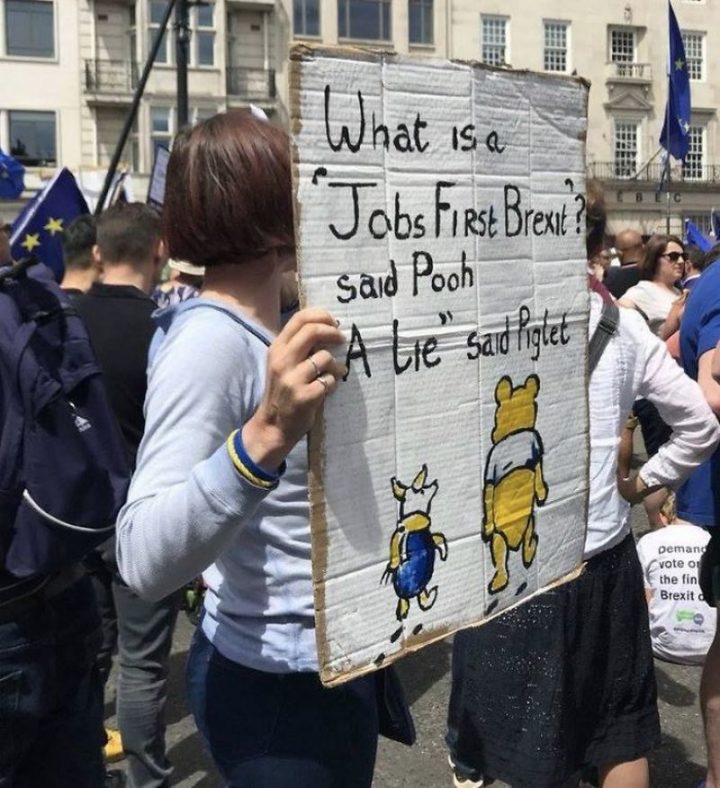 What is a
"Jobs First Brexit"?
said Pooh
"A Lie" said Piglet
Demand
vote on
the fin
Brexit d